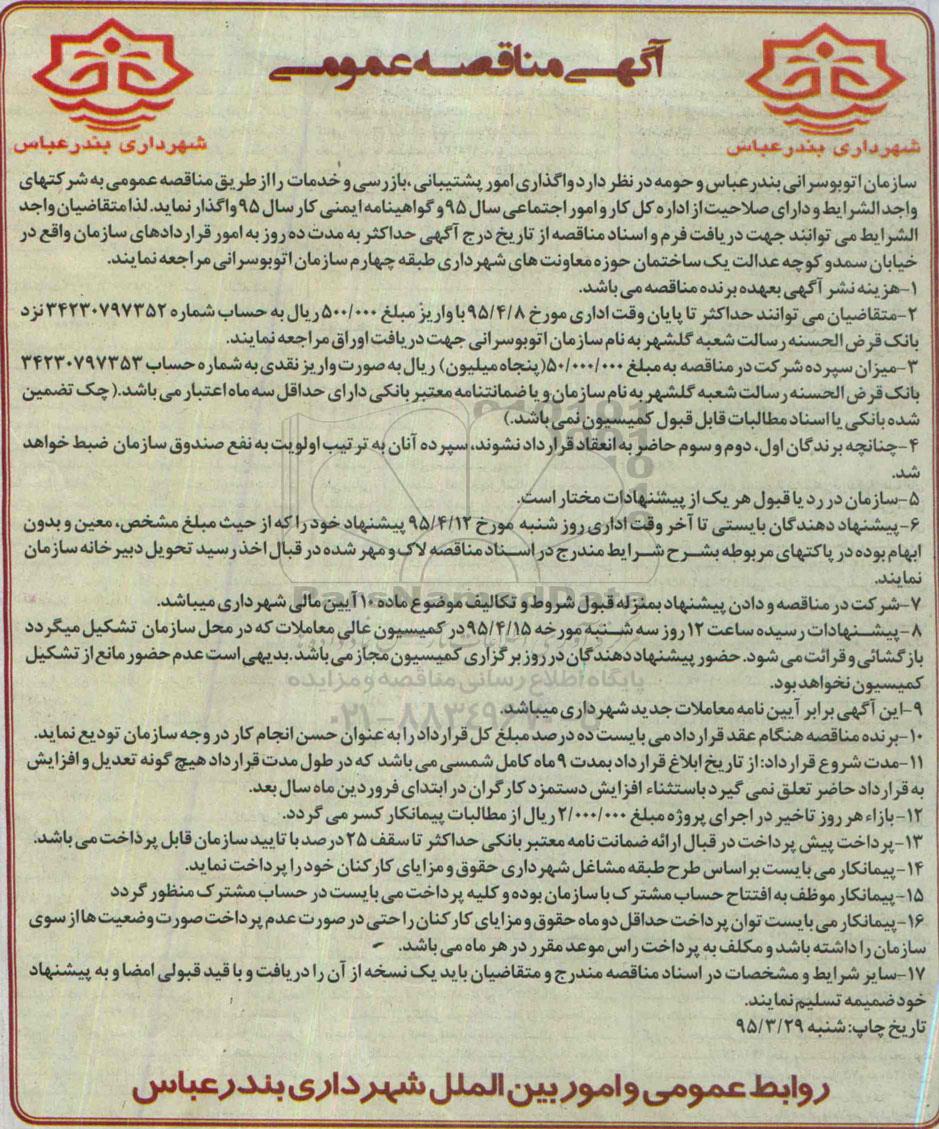 آگهی مناقصه عمومی
شهرداری بندرعباس
شهرداری بندرعباس
سازمان اتوبوسرانی بندرعباس و حومه در نظر دارد واگذاری امور پشتیبانی ،بازرسی و خدمات را از طریق مناقصه عمومی به شرکتهای
واجد الشرایط و دارای صلاحیت از اداره کل کار و امور اجتماعی سال ۹۵ و گواهینامه ایمنی کار سال ۹۵ واگذار نماید. لذا متقاضیان واجد
الشرایط می توانند جهت دریافت فرم و اسناد مناقصه از تاریخ درج آگهی حداکثر به مدت ده روز به امور قراردادهای سازمان واقع در
خیابان سمدو کوچه عدالت یک ساختمان حوزه معاونت های شهرداری طبقه چهارم سازمان اتوبوسرانی مراجعه نمایند.
۱-هزینه نشر آگهی بعهده برنده مناقصه می باشد.
۲-متقاضیان می توانند حداکثر تا پایان وقت اداری مورخ ۹۵/۴/۸ با واریز مبلغ ۵۰۰/۰۰۰ ریال به حساب شماره ۳۴۲۳۰۷۹۷۳۵۲ نزد
بانک قرض الحسنه رسالت شعبه گلشهر به نام سازمان اتوبوسرانی جهت دریافت اوراق مراجعه نمایند.
۳-میزان سپرده شرکت در مناقصه به مبلغ ۵۰/۰۰۰/۰۰۰(پنجاه میلیون) ریال به صورت واریز نقدی به شماره حساب ۳۴۲۳۰۷۹۷۳۵۳
بانک قرض الحسنه رسالت شعبه گلشهر به نام سازمان و یا ضمانتنامه معتبر بانکی دارای حداقل سه ماه اعتبار می باشد.( چک تضمین
شده بانکی یا اسناد مطالبات قابل قبول کمیسیون نمی باشد.)
۴-چنانچه برندگان اول، دوم و سوم حاضر به انعقاد قرارداد نشوند، سپرده آنان به ترتیب اولویت به نفع صندوق سازمان ضبط خواهد
شد.
۵-سازمان در رد یا قبول هر یک از پیشنهادات مختار است.
۶-پیشنهاد دهندگان بایستی تا آخر وقت اداری روز شنبه مورخ ۹۵/۴/۱۲ پیشنهاد خود را که از حیث مبلغ مشخص، معین و بدون
ابهام بوده در پاکتهای مربوطه بشرح شرایط مندرج در اسناد مناقصه لاک و مهر شده در قبال اخذ رسید تحویل دبیرخانه سازمان
نمایند.
۷-شرکت در مناقصه و دادن پیشنهاد بمنزله قبول شروط و تکالیف موضوع ماده ۱۰ آیین مالی شهرداری میباشد.
۸-پیشنهادات رسیده ساعت ۱۲ روز سه شنبه مورخه ۹۵/۴/۱۵ در کمیسیون عالی معاملات که در محل سازمان تشکیل میگردد
بازگشائی و قرائت می شود. حضور پیشنهاد دهندگان در روز برگزاری کمیسیون مجاز می باشد.بدیهی است عدم حضور مانع از تشکیل
کمیسیون نخواهد بود.
۹-این آگهی برابر آیین نامه معاملات جدید شهرداری میباشد.
۱۰-برنده مناقصه هنگام عقد قرارداد می بایست ده درصد مبلغ کل قرارداد را به عنوان حسن انجام کار در وجه سازمان تودیع نماید.
۱۱-مدت شروع قرارداد: از تاریخ ابلاغ قرارداد بمدت ۹ ماه کامل شمسی می باشد که در طول مدت قرارداد هیچ گونه تعدیل و افزایش
به قرارداد حاضر تعلق نمی گیرد باستثناء افزایش دستمزد کارگران در ابتدای فروردین ماه سال بعد.
۱۲-بازاء هر روز تاخیر در اجرای پروژه مبلغ ۲/۰۰۰/۰۰۰ ریال از مطالبات پیمانکار کسر می گردد.
۱۳-پرداخت پیش پرداخت در قبال ارائه ضمانت نامه معتبر بانکی حداکثر تا سقف ۲۵ درصد با تایید سازمان قابل پرداخت می باشد.
۱۴-پیمانکار می بایست بر اساس طرح طبقه مشاغل شهرداری حقوق و مزایای کارکنان خود را پرداخت نماید.
۱۵-پیمانکار موظف به افتتاح حساب مشترک با سازمان بوده و کلیه پرداخت می بایست در حساب مشترک منظور گردد
۱۶-پیمانکار می بایست توان پرداخت حداقل دو ماه حقوق و مزایای کارکنان را حتی در صورت عدم پرداخت صورت وضعیت ها از سوی
سازمان را داشته باشد و مکلف به پرداخت راس موعد مقرر در هر ماه می باشد.
۱۷-سایر شرایط و مشخصات در اسناد مناقصه مندرج و متقاضیان باید یک نسخه از آن را دریافت و با قید قبولی امضا و به پیشنهاد
خود ضمیمه تسلیم نمایند.
تاریخ چاپ: شنبه ۹۵/۳/۲۹
روابط عمومی و امور بین الملل شهرداری بندرعباس
ParsNamadData
پایگاه اطلاع رسانی مناقصه و مزایده